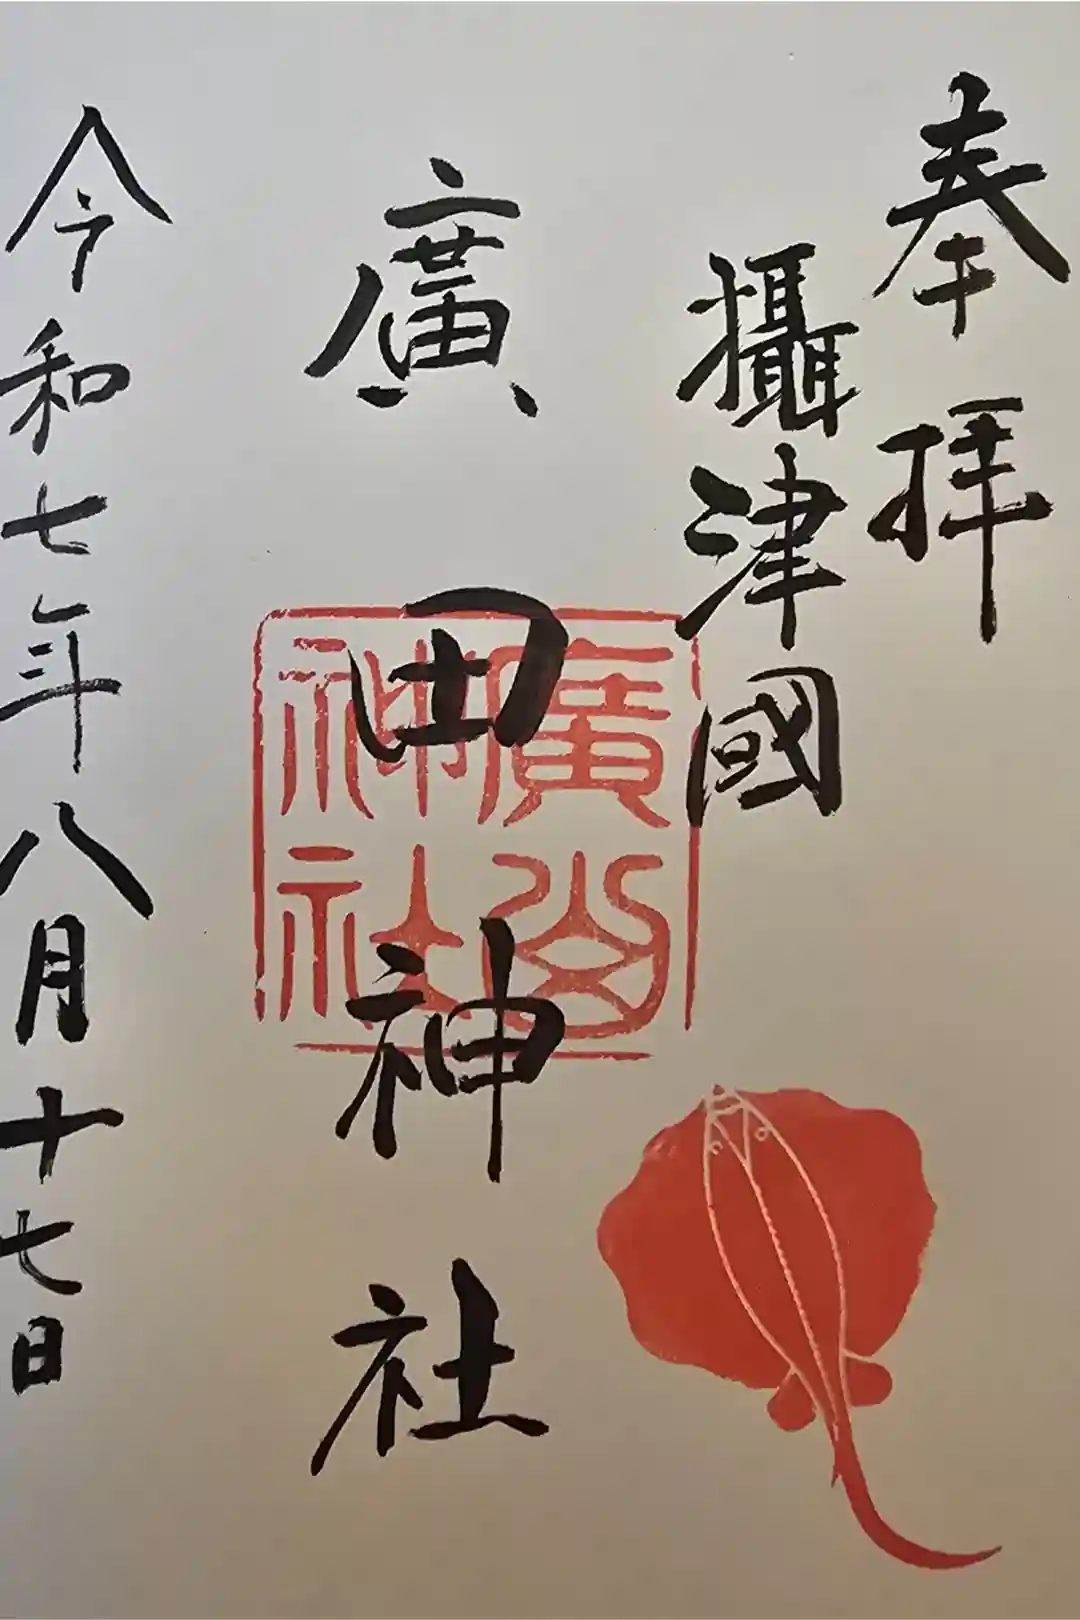 奉拝
攝津國
廣田神社
令和七年八月十七日